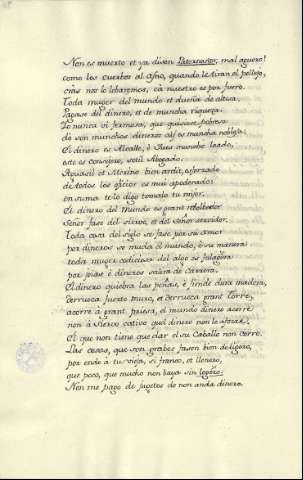 Non es muerto et ya disen Pater noster, mal aguero!
como los cuerbos al Asno, quando le tiran el pellejo,
cras nos lo lebaremos, cà nuestro es por fuero.
Toda muger del mundo et dueña de altesa,
pagase del dinero, et de mucha riquesa,
Yo nunca vi fermosa, que quisiese pobresa
do son munchos dineros ahi es mancha noblesa.
El dinero es Alcalle, è Jues muncho loado,
este es consejero, sotil Abogado,
Aguacil et Merino bien ardit, esforzado
de todos los oficios es mui apoderado:
en suma telo digo tomalo tu mejor.
El dinero del mundo es grant rebolvedor
Señor fase del siervo, è del señor servidor.
Toda cosa del siglo se fase por su amor
por dineros se muda el mundo, è su manera
toda muger codiciosa del algo es falaguera
por joias è dineros salirà de carrera.
El dinero quiebra las peñas, è fiende dura madera,
derrueca fuerte muro, et derrueca grant Torre,
acorre à grant priesa, el mundo dinero acorre
non à Siervo cativo quel dinero non le aforre.
El que non tiene que dar el su Caballo non corre.
Las cosas, que son grabes fason bien de ligero,
por ende à tu vieja, si franco, et llenero,
que poco, que mucho non baya sin logrero:
Non me pago de jugetes do non anda dinero.